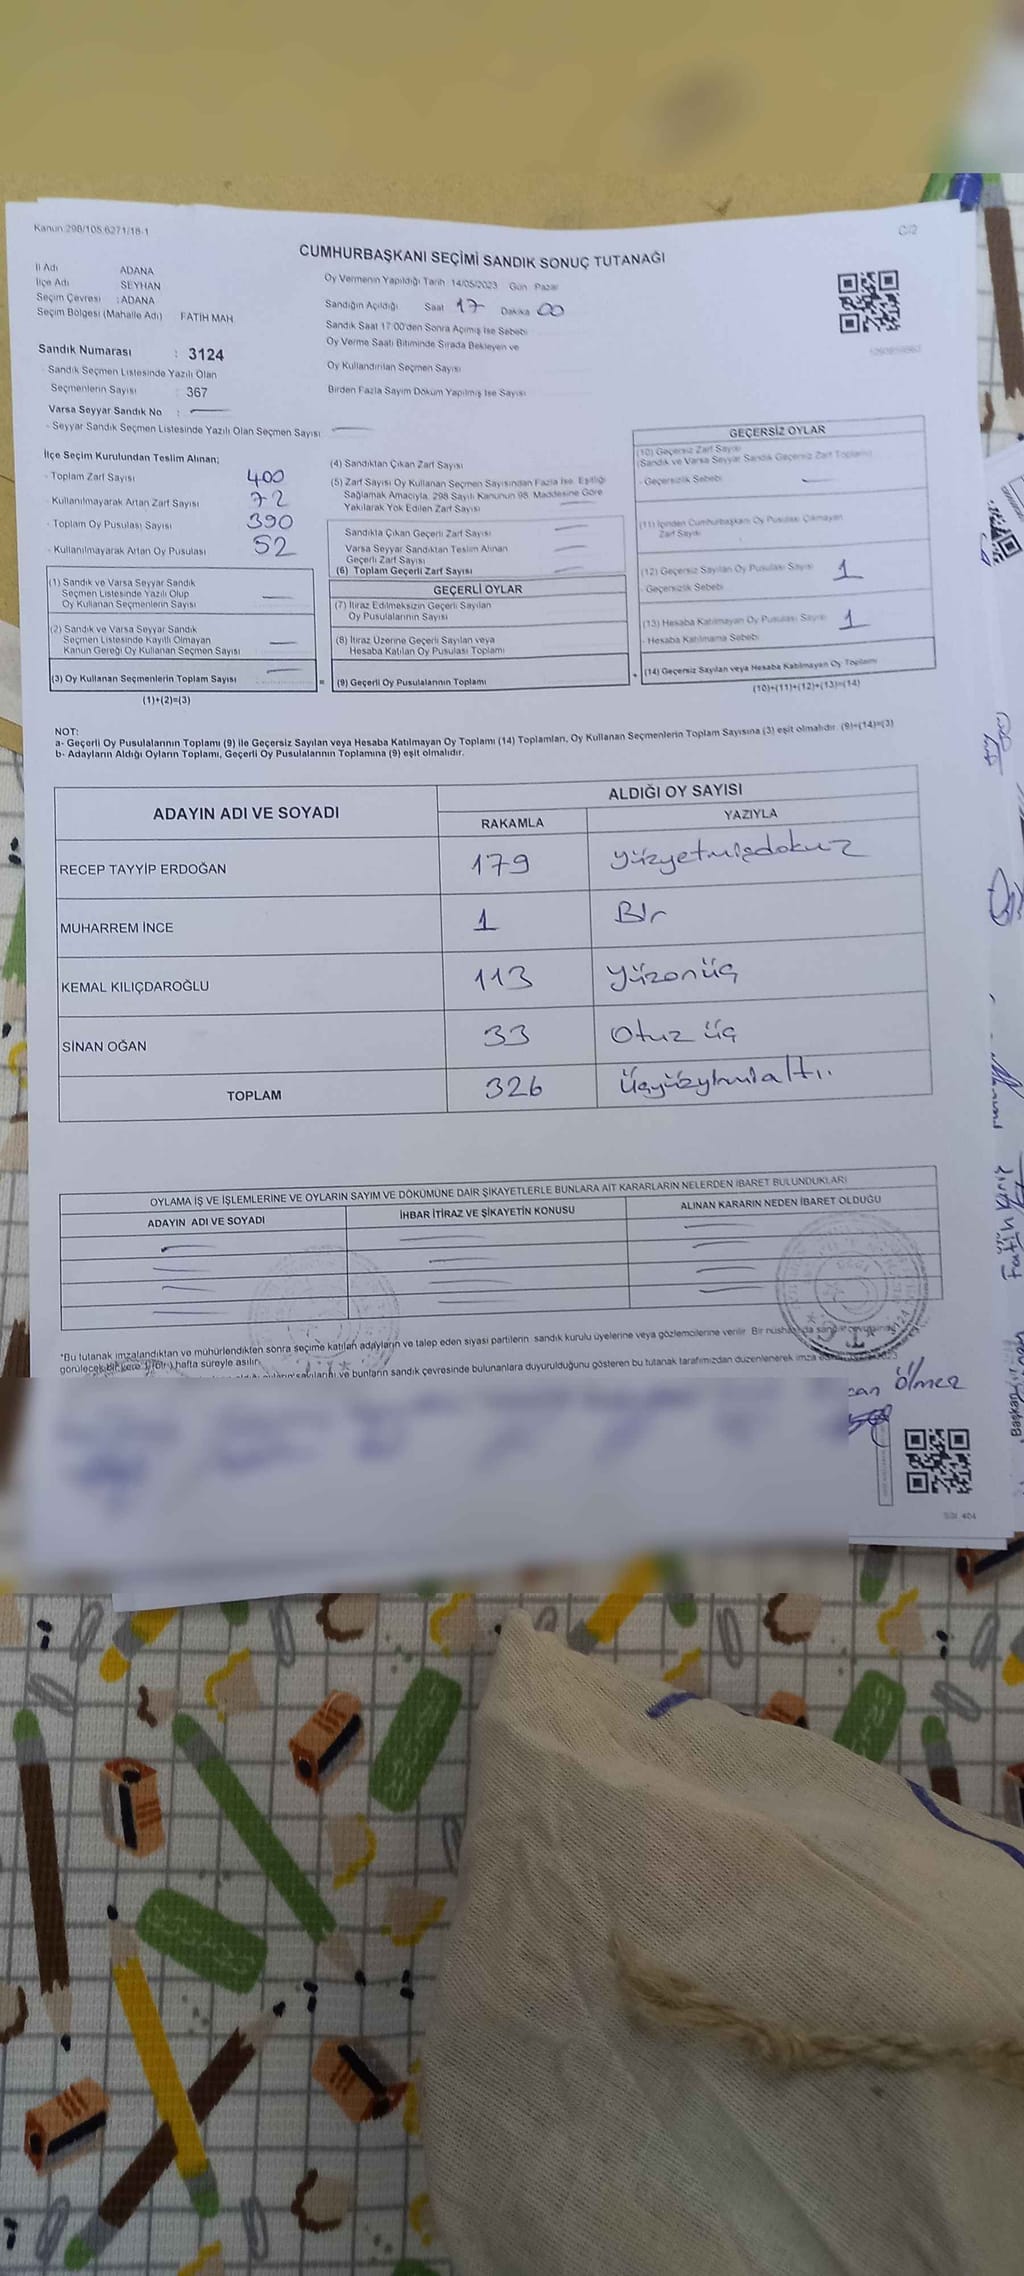 Kanun 298/105.6271/18-1
C/2
CUMHURBAŞKANI SEÇİMİ SANDIK SONUÇ TUTANAĞI
İl Adı ADANA
İlçe Adı SEYHAN
Seçim Çevresi : ADANA
Seçim Bölgesi (Mahalle Adı) FATİH MAH.
Oy Vermenin Yapıldığı Tarih 14/05/2023 Gün Pazar
Sandığın Açıldığı Saat 17 Dakika 00
Sandık Saat 17:00'den Sonra Açılmış İse Sebebi
Oy Verme Saati Bitiminde Sırada Bekleyen ve
Oy Kullandırılan Seçmen Sayısı
Birden Fazla Sayım Döküm Yapılmış İse Sayısı
Sandık Numarası : 3124
- Sandık Seçmen Listesinde Yazılı Olan
Seçmenlerin Sayısı : 367
Varsa Seyyar Sandık No :
- Seyyar Sandık Seçmen Listesinde Yazılı Olan Seçmen Sayısı
İlçe Seçim Kurulundan Teslim Alınan;
- Toplam Zarf Sayısı 400
- Kullanılmayarak Artan Zarf Sayısı 72
- Toplam Oy Pusulası Sayısı 390
- Kullanılmayarak Artan Oy Pusulası 52
(1) Sandık ve Varsa Seyyar Sandık
Seçmen Listesinde Yazılı Olup
Oy Kullanan Seçmenlerin Sayısı
(2) Sandık ve Varsa Seyyar Sandık
Seçmen Listesinde Kayıtlı Olmayan
Kanun Gereği Oy Kullanan Seçmen Sayısı
(3) Oy Kullanan Seçmenlerin Toplam Sayısı
(1)+(2)=(3)
(4) Sandıktan Çıkan Zarf Sayısı
(5) Zarf Sayısı Oy Kullanan Seçmen Sayısından Fazla İse, Eşitliği
Sağlamak Amacıyla, 298 Sayılı Kanunun 98. Maddesine Göre
Yakılarak Yok Edilen Zarf Sayısı
Sandıkla Çıkan Geçerli Zarf Sayısı
Varsa Seyyar Sandıktan Teslim Alınan
Geçerli Zarf Sayısı
(6) Toplam Geçerli Zarf Sayısı
GEÇERLİ OYLAR
(7) İtiraz Edilmeksizin Geçerli Sayılan
Oy Pusulalarının Sayısı
(8) İtiraz Üzerine Geçerli Sayılan veya
Hesaba Katılan Oy Pusulası Toplamı
= (9) Geçerli Oy Pusulalarının Toplamı
GEÇERSİZ OYLAR
(10) Geçersiz Zarf Sayısı
(Sandık ve Varsa Seyyar Sandık Geçersiz Zarf Toplamı)
- Geçersizlik Sebebi
(11) İçinden Cumhurbaşkanı Oy Pusulası Çıkmayan
Zarf Sayısı
(12) Geçersiz Sayılan Oy Pusulası Sayısı 1
- Geçersizlik Sebebi
(13) Hesaba Katılmayan Oy Pusulası Sayısı 1
- Hesaba Katılmama Sebebi
+ (14) Geçersiz Sayılan veya Hesaba Katılmayan Oy Toplamı
(10)+(11)+(12)+(13)=(14)
NOT:
a- Geçerli Oy Pusulalarının Toplamı (9) ile Geçersiz Sayılan veya Hesaba Katılmayan Oy Toplamı (14) Toplamları, Oy Kullanan Seçmenlerin Toplam Sayısına (3) eşit olmalıdır. (9)+(14)=(3)
b- Adayların Aldığı Oyların Toplamı, Geçerli Oy Pusulalarının Toplamına (9) eşit olmalıdır.
ADAYIN ADI VE SOYADI
ALDIĞI OY SAYISI
RAKAMLA YAZIYLA
RECEP TAYYİP ERDOĞAN 179 Yüzyetmişdokuz
MUHARREM İNCE 1 Bir
KEMAL KILIÇDAROĞLU 113 Yüzonüç
SİNAN OĞAN 33 Otuz üç
TOPLAM 326 Üçyüzyirmialtı..
OYLAMA İŞ VE İŞLEMLERİNE VE OYLARIN SAYIM VE DÖKÜMÜNE DAİR ŞİKAYETLERLE BUNLARA AİT KARARLARIN NELERDEN İBARET BULUNDUKLARI
ADAYIN ADI VE SOYADI İHBAR İTİRAZ VE ŞİKAYETİN KONUSU ALINAN KARARIN NEDEN İBARET OLDUĞU
*Bu tutanak imzalandıktan ve mühürlendikten sonra seçime katılan adayların ve talep eden siyasi partilerin sandık kurulu üyelerine veya gözlemcilerine verilir. Bir nüshası da
görülecek bir yere 1 (bir) hafta süreyle asılır.
ve bunların sandık çevresinde bulunanlara duyurulduğunu gösteren bu tutanak tarafımızdan düzenlenerek imza
can ölmez
Fatih
Başkan